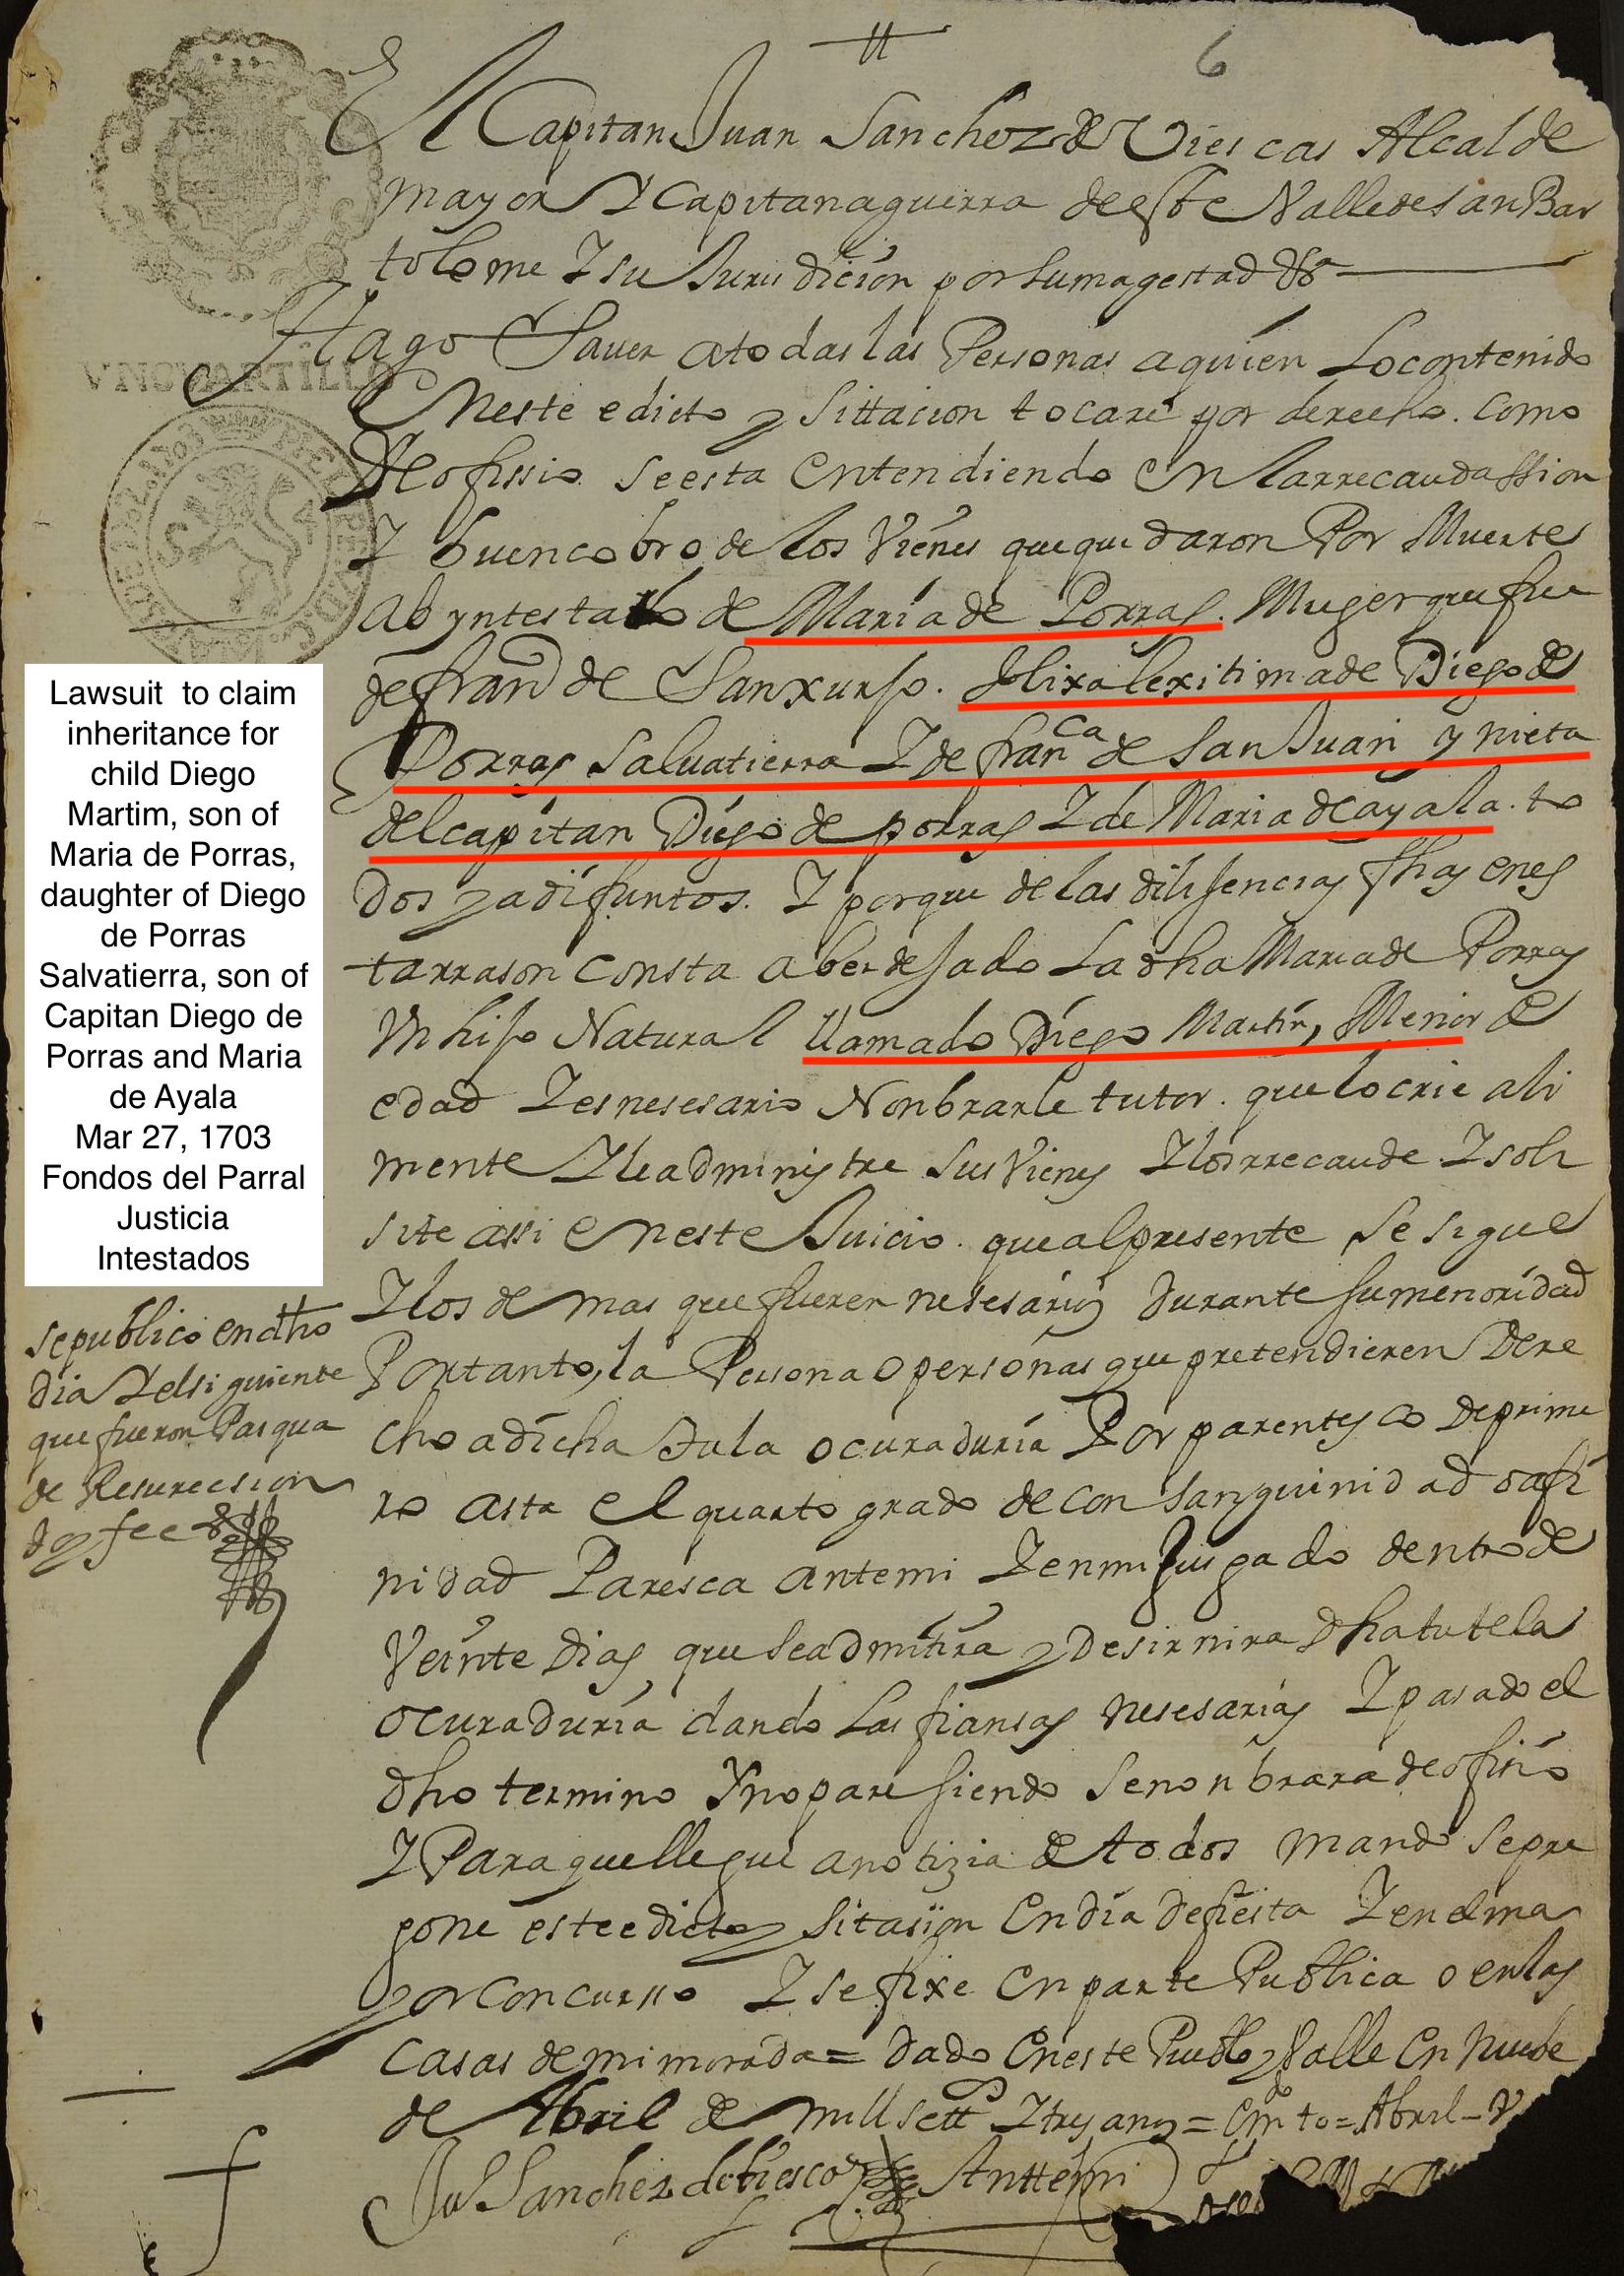 6
El Capitan Juan Sanchez de Viescas Alcalde
mayor Y Capitanaguerra deeste Valledesan Bar
tolome Y su Jurisdicion porsumagestad &a
Hago Saver atodas las Personas aquien Locontenido
Eneste edicto y Sittacion tocare por derecho. como
de ofissio seesta Entendiendo En larrecaudassion
Y buencobro de los Vienes quequedaron Por Muerte
abyntestato de Maria de Porras. Muger que fue
de franco de Sanxurjo. Hixa lexitima de Diego de
Porras Salvatierra Y de franca de San Juan y nieta
del capitan Diego de porras Y de Maria de ayala. to
dos ya difuntos. Y porque de las dilijencias fhas enes
tarrason consta aber dejado La dha Maria de Porras
Un hijo Natural llamado Diego Martin, Menor de
edad Y es nesesario Nonbrarle tutor. que lo crie ali
mente Y le administre sus Vienes Y los rrecaude Y soli
site assi Eneste Juicio. que al presente se sigue
Y los demas que fueren nesesarios durante su menoridad
Portanto, la Persona o personas que pretendieren Dere
cho a dicha tutela o curaduria Por parentesco de prime
ro asta el quarto grado de consanguinidad o afi
nidad Paresca antemi Y en mi Jusgado dentro de
Veinte Dias que se admitira y desirnira dha tutela
o curaduria dando Las fiansas nesesarias Y pasado el
dho termino Y no paresiendo se nonbrara de ofisio
Y Para que llegue a notizia de todos mando se pre
gone este edicto y sitasion En dia de fiesta Y en el ma
yor concurso Y se fixe En parte Publica o en las
casas de mi morada = dado En este Pueblo y Valle En nuebe
de Abril de mill setto Y tres anos = Emdo = to = Abril - V
Ju Sanchez de Viescas
Antemi
VNQVARTILLO
Lawsuit to claim
inheritance for
child Diego
Martim, son of
Maria de Porras,
daughter of Diego
de Porras
Salvatierra, son of
Capitan Diego de
Porras and Maria
de Ayala
Mar 27, 1703
Fondos del Parral
Justicia
Intestados
se publico en dho
dia Y el siguiente
que fueron Pasqua
de Resurecsion
doy fee